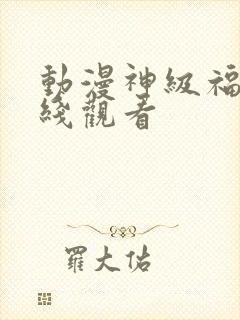 動漫神級福
綫觀看
羅大佑